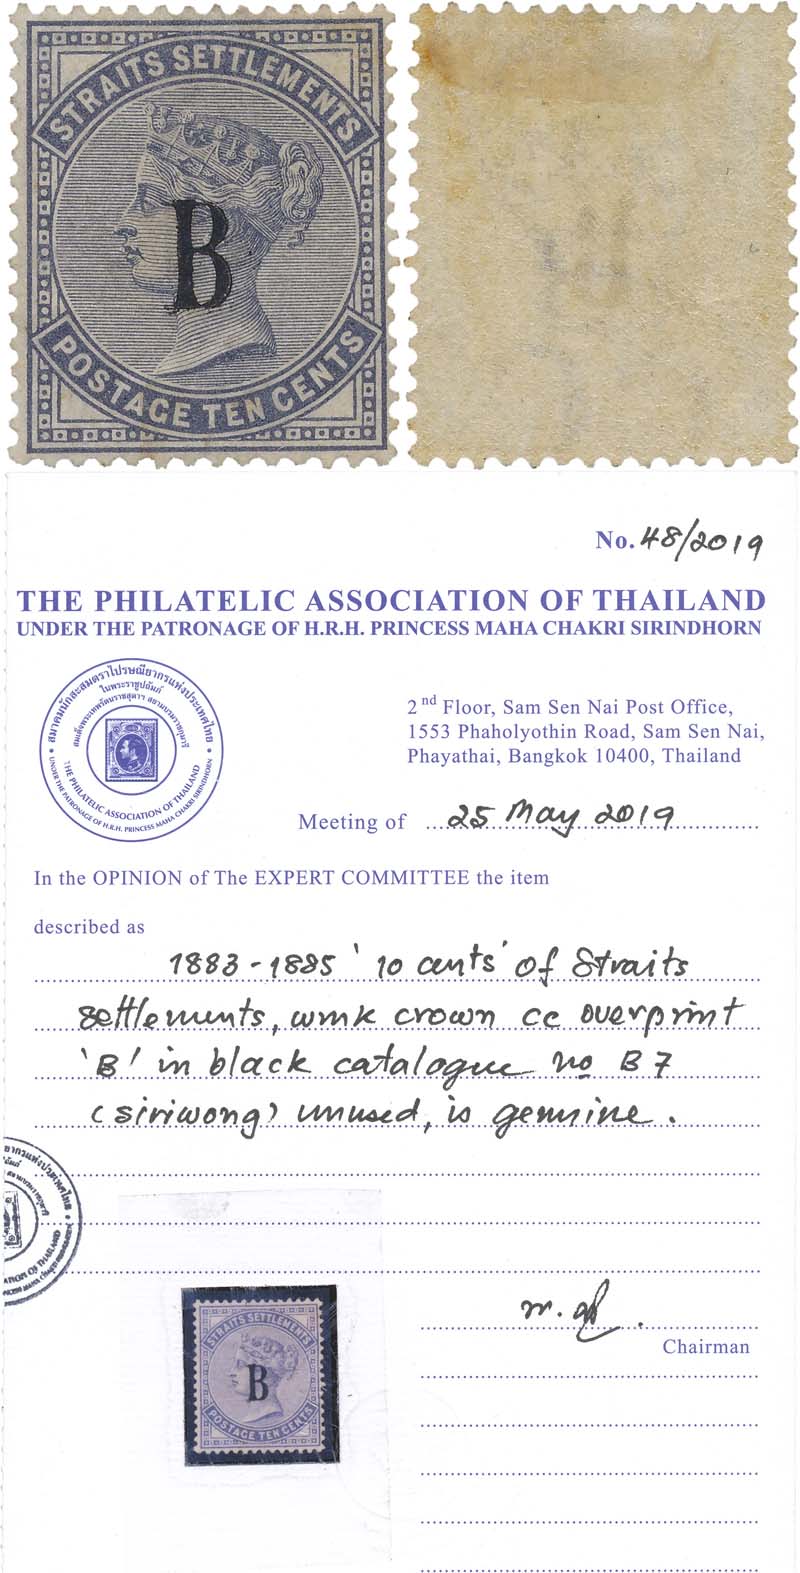 STRAITS SETTLEMENTS
B
POSTAGE TEN CENTS
No. 48/2019
THE PHILATELIC ASSOCIATION OF THAILAND
UNDER THE PATRONAGE OF H.R.H. PRINCESS MAHA CHAKRI SIRINDHORN
สมาคมนักสะสมตราไปรษณียากรแห่งประเทศไทย
ในพระราชูปถัมภ์
สมเด็จพระเทพรัตนราชสุดาฯ สยามบรมราชกุมารี
THE PHILATELIC ASSOCIATION OF THAILAND
UNDER THE PATRONAGE OF H.R.H. PRINCESS MAHA CHAKRI SIRINDHORN
2nd Floor, Sam Sen Nai Post Office,
1553 Phaholyothin Road, Sam Sen Nai,
Phayathai, Bangkok 10400, Thailand
Meeting of 25 May 2019
In the OPINION of The EXPERT COMMITTEE the item
described as
1883-1885 '10 cents' of Straits
settlements, wmk crown cc overprint
'B' in black catalogue no B7
(siriwong) unused, is genuine.
STRAITS SETTLEMENTS
B
POSTAGE TEN CENTS
Chairman